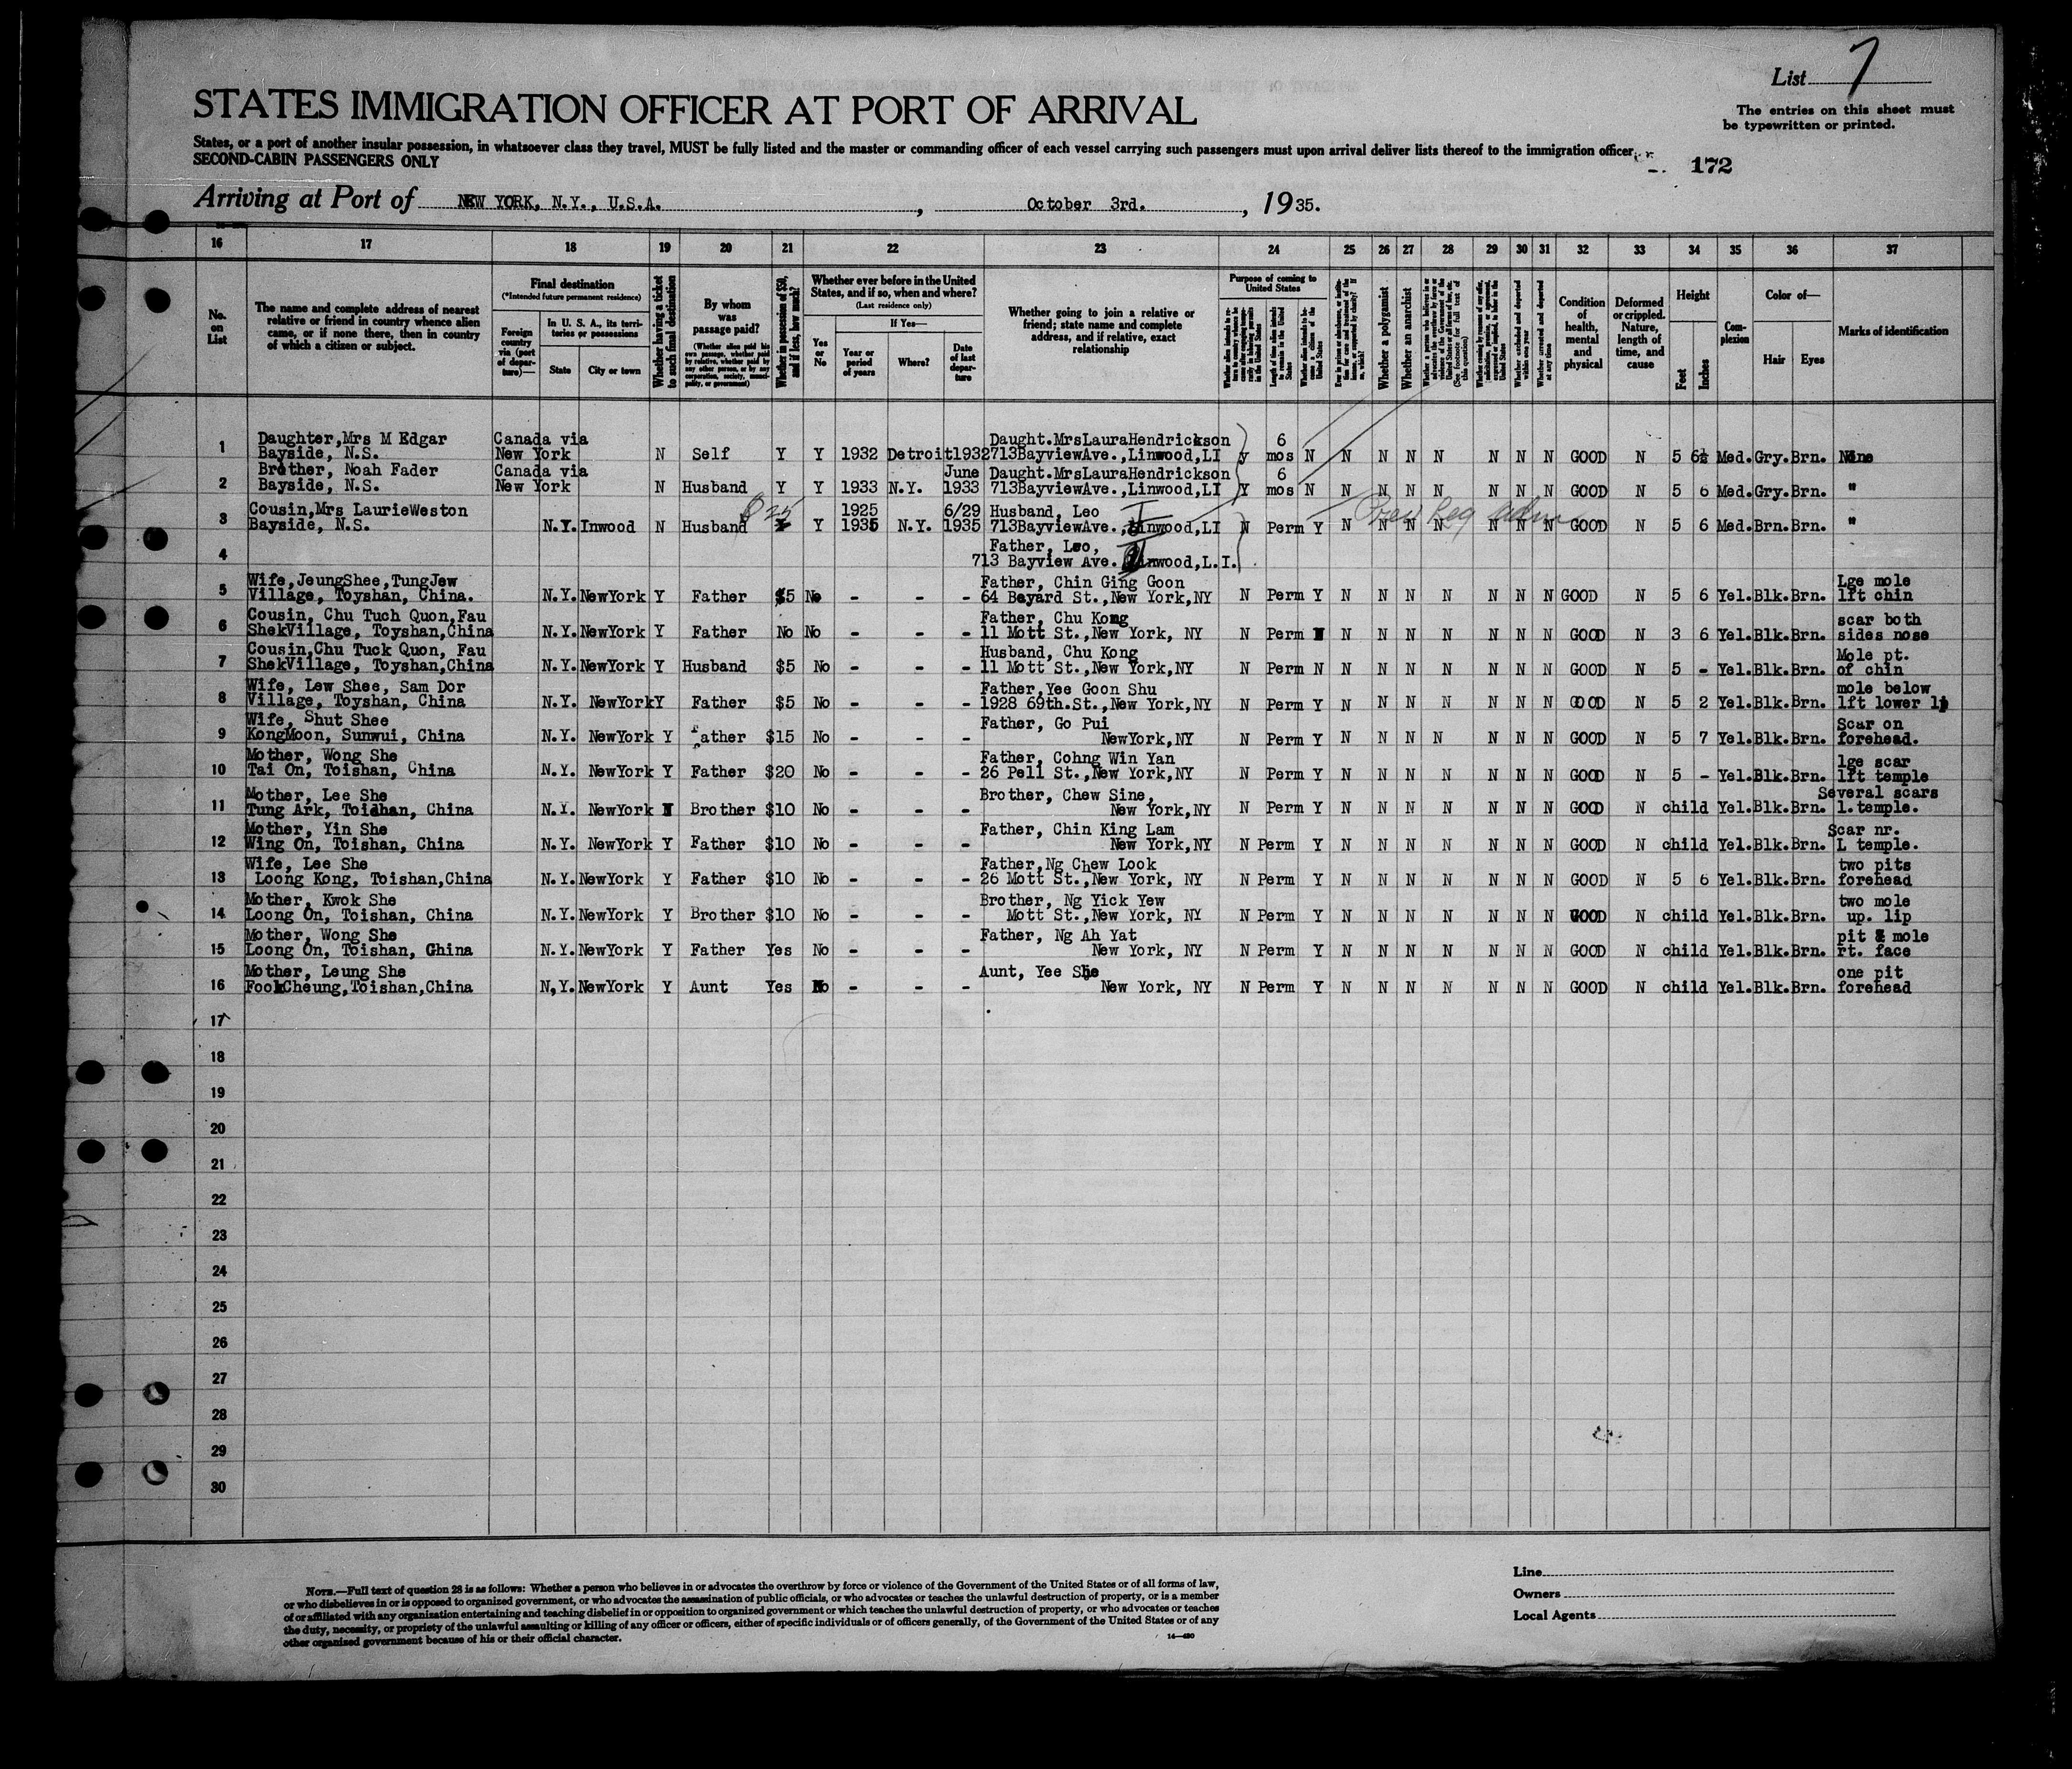 List 7
The entries on this sheet must
be typewritten or printed.
STATES IMMIGRATION OFFICER AT PORT OF ARRIVAL
States, or a port of another insular possession, in whatsoever class they travel, MUST be fully listed and the master or commanding officer of each vessel carrying such passengers must upon arrival deliver lists thereof to the immigration officer
SECOND-CABIN PASSENGERS ONLY
172
Arriving at Port of NEW YORK, N.Y., U.S.A. , October 3rd. , 1935.
16 17 18 19 20 21 22 23 24 25 26 27 28 29 30 31 32 33 34 35 36 37
No. on List
The name and complete address of nearest relative or friend in country whence alien came, or if none there, then in country of which a citizen or subject.
Final destination
(*Intended future permanent residence)
Foreign country via (port of departure)—
In U. S. A., its territories or possessions
State
City or town
Whether having a ticket to such final destination
By whom was passage paid?
(Whether alien paid his own passage, whether paid by relative, whether paid by any other person, or by any corporation, society, municipality, or government)
Whether in possession of $50, and if less, how much?
Whether ever before in the United States, and if so, when and where?
(Last residence only)
Yes or No
If Yes—
Year or period of years
Where?
Date of last departure
Whether going to join a relative or friend; state name and complete address, and if relative, exact relationship
Purpose of coming to United States
Length of time alien intends to remain in the United States
Whether alien intends to become a citizen of the United States
Whether a polygamist
Whether an anarchist
Whether excluded and deported within one year
Whether arrested and deported at any time
Condition of health, mental and physical
Deformed or crippled. Nature, length of time, and cause
Height
Feet
Inches
Complexion
Color of—
Hair
Eyes
Marks of identification
1 Daughter,Mrs M Edgar Canada via Daught.MrsLauraHendrickson 6
Bayside, N.S. New York N Self Y Y 1932 Detroit1932 713BayviewAve.,Linwood,LI y mos N N N N N N N N GOOD N 5 6½ Med. Gry. Brn. None
2 Brother, Noah Fader Canada via June Daught.MrsLauraHendrickson 6
Bayside, N.S. New York N Husband Y Y 1933 N.Y. 1933 713BayviewAve.,Linwood,LI Y mos N N N N N N N N GOOD N 5 6 Med. Gry. Brn. "
$25
3 Cousin,Mrs LaurieWeston 1925 6/29 Husband, Leo
Bayside, N.S. N.Y. Inwood N Husband Y Y 1935 N.Y. 1935 713BayviewAve.,Linwood,LI N Perm Y N N N N N N N GOOD N 5 6 Med. Brn. Brn. "
4 Father, Leo,
713 Bayview Ave. Linwood,L.I.
5 Wife,JeungShee,TungJew Father, Chin Ging Goon Lge mole
Village, Toyshan, China. N.Y. NewYork Y Father $5 No - - - 64 Bayard St.,New York,NY N Perm Y N N N N N N N GOOD N 5 6 Yel. Blk. Brn. lft chin
6 Cousin, Chu Tuch Quon,Fau Father, Chu Kong scar both
ShekVillage, Toyshan,China N.Y. NewYork Y Father No No - - - 11 Mott St.,New York, NY N Perm N N N N N N N N GOOD N 3 6 Yel. Blk. Brn. sides nose
7 Cousin,Chu Tuck Quon, Fau Husband, Chu Kong Mole pt.
ShekVillage, Toyshan,China N.Y. NewYork Y Husband $5 No - - - 11 Mott St.,New York,NY N Perm N N N N N N N N GOOD N 5 - Yel. Blk. Brn. of chin
8 Wife, Lew Shee, Sam Dor Father,Yee Goon Shu mole below
Village, Toyshan, China N.Y. NewYork Y Father $5 No - - - 1928 69th.St.,New York,NY N Perm Y N N N N N N N GOOD N 5 2 Yel. Blk. Brn. lft lower lip
9 Wife, Shut Shee Father, Go Pui Scar on
KongMoon, Sunwui, China N.Y. NewYork Y Father $15 No - - - NewYork,NY N Perm Y N N N N N N N GOOD N 5 7 Yel. Blk. Brn. forehead.
10 Mother, Wong She Father, Cohng Win Yan lge scar
Tai On, Toishan, China N.Y. NewYork Y Father $20 No - - - 26 Pell St.,New York,NY N Perm Y N N N N N N N GOOD N 5 - Yel. Blk. Brn. lft temple
11 Mother, Lee She Brother, Chew Sine, Several scars
Tung Ark, Toidhan, China N.Y. NewYork N Brother $10 No - - - New York,NY N Perm Y N N N N N N N GOOD N child Yel. Blk. Brn. l.temple.
12 Mother, Yin She Father, Chin King Lam Scar nr.
Wing On, Toishan, China N.Y. NewYork Y Father $10 No - - - New York,NY N Perm Y N N N N N N N GOOD N child Yel. Blk. Brn. L temple.
13 Wife, Lee She Father,Ng Chew Look two pits
Loong Kong, Toishan,China N.Y. NewYork Y Father $10 No - - - 26 Mott St.,New York, NY N Perm Y N N N N N N N GOOD N 5 6 Yel. Blk. Brn. forehead
14 Mother, Kwok She Brother, Ng Yick Yew two mole
Loong On, Toishan, China N.Y. NewYork Y Brother $10 No - - - Mott St.,New York, NY N Perm Y N N N N N N N GOOD N child Yel. Blk. Brn. up. lip
15 Mother, Wong She Father, Ng Ah Yat pit & mole
Loong On, Toishan, China N.Y. NewYork Y Father Yes No - - - New York, NY N Perm Y N N N N N N N GOOD N child Yel. Blk. Brn. rt. face
16 Mother, Leung She Aunt, Yee She one pit
FookCheung,Toishan,China N,Y. NewYork Y Aunt Yes No - - - New York, NY N Perm Y N N N N N N N GOOD N child Yel. Blk. Brn. forehead
17
18
19
20
21
22
23
24
25
26
27
28
29
30
NOTE.—Full text of question 28 is as follows: Whether a person who believes in or advocates the overthrow by force or violence of the Government of the United States or of all forms of law,
or who disbelieves in or is opposed to organized government, or who advocates the assassination of public officials, or who advocates or teaches the unlawful destruction of property, or is a member
of or affiliated with any organization entertaining and teaching disbelief in or opposition to organized government or which teaches the unlawful destruction of property, or who advocates or teaches
the duty, necessity, or propriety of the unlawful assaulting or killing of any officer or officers, either of specific individuals or of officers generally, of the Government of the United States or of any
other organized government because of his or their official character.
14—430
Line
Owners
Local Agents